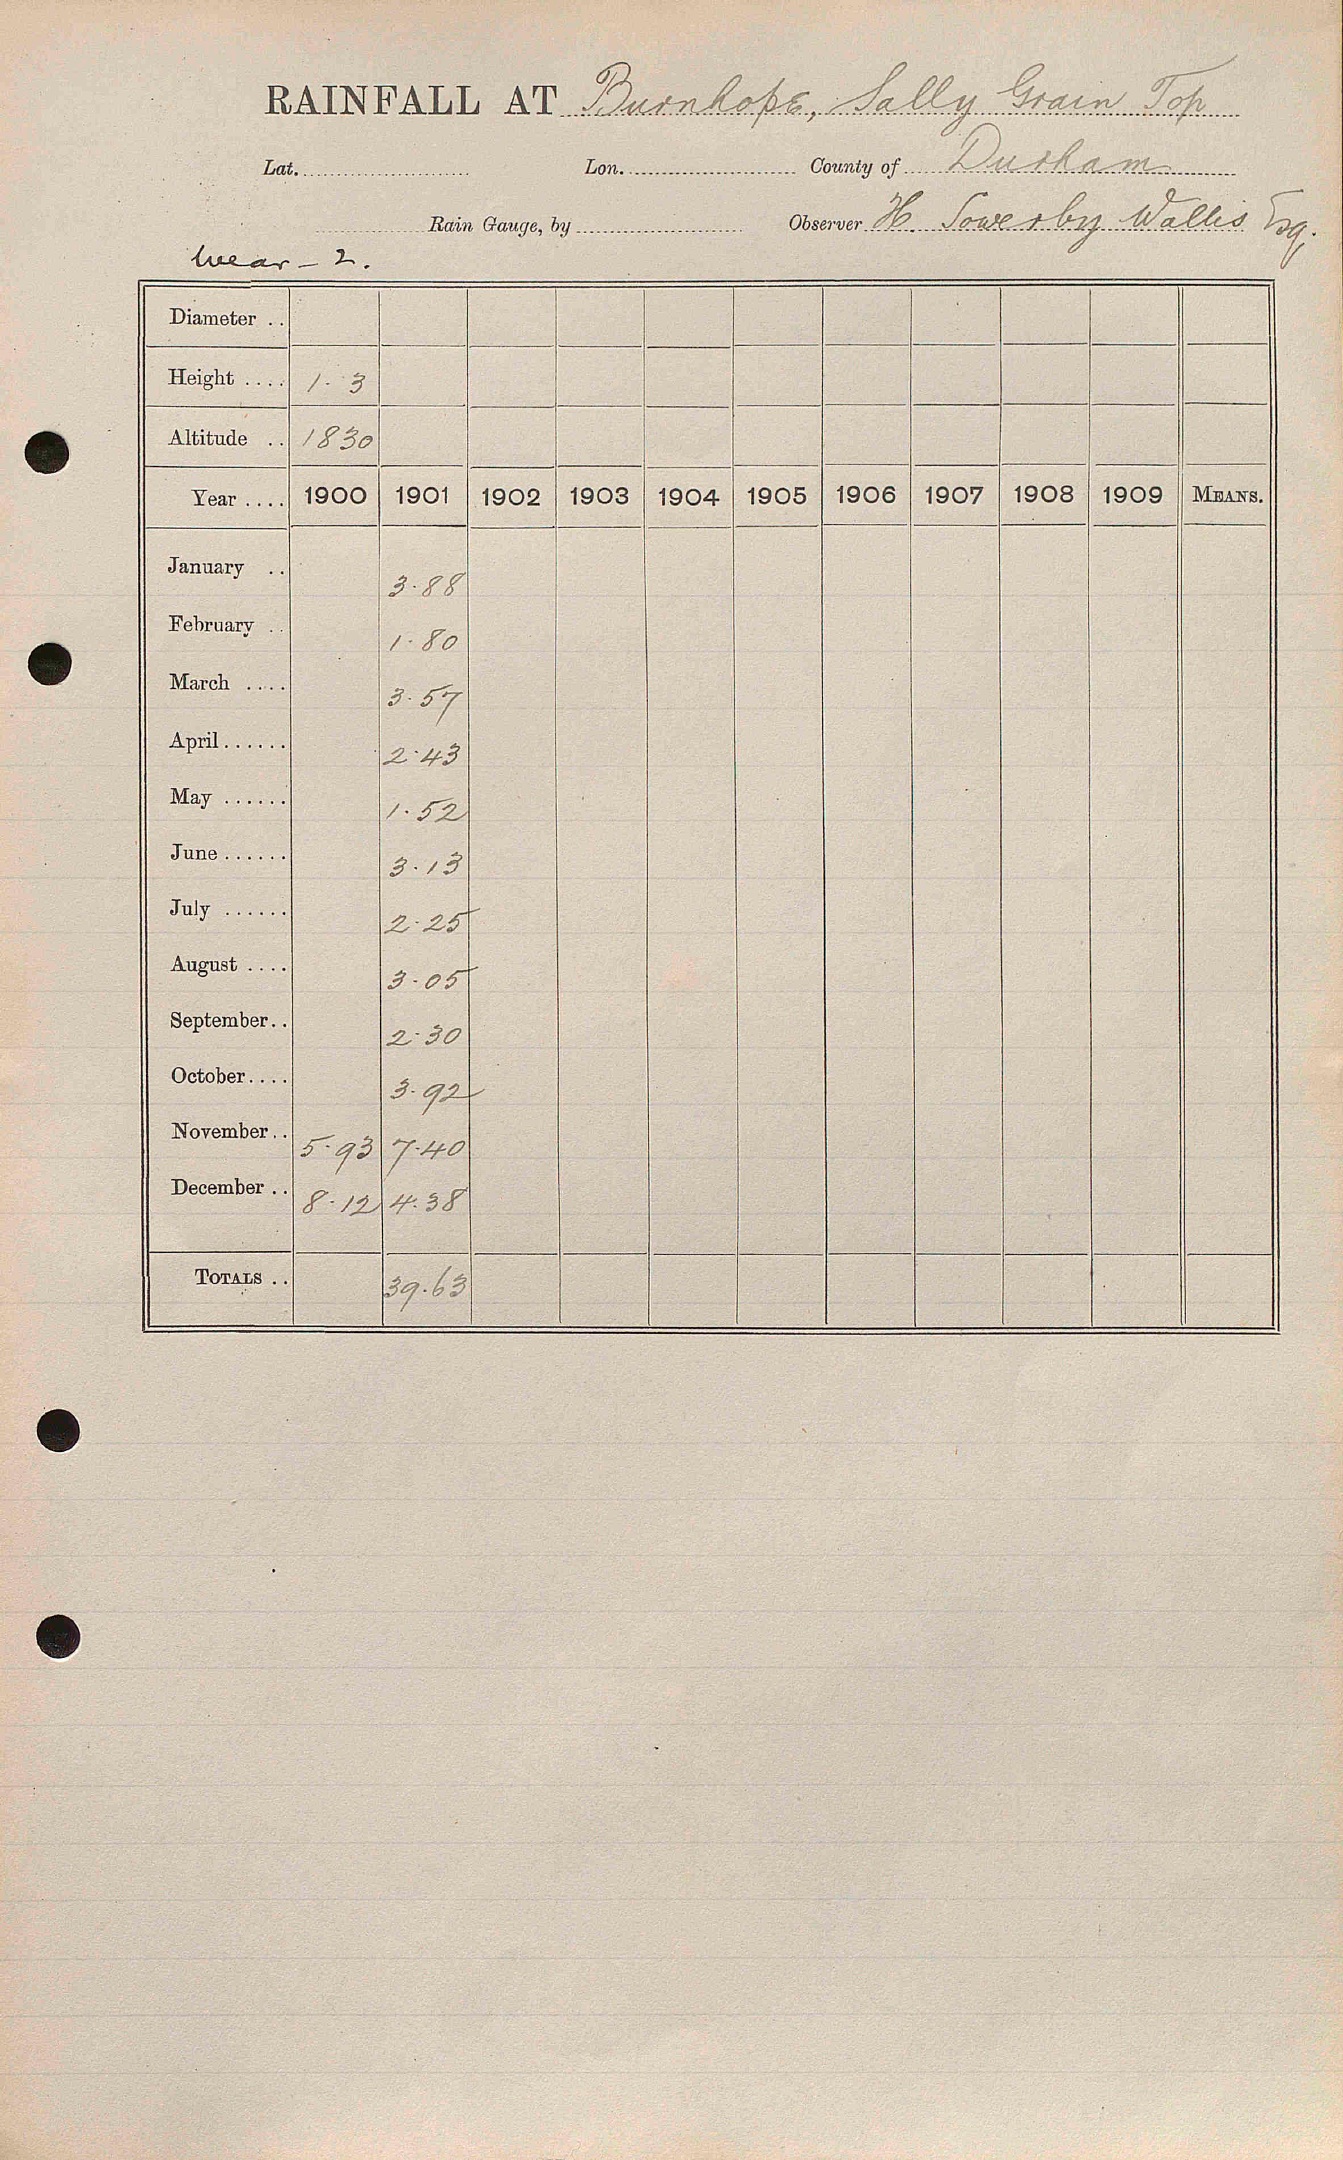 RAINFALL AT Burnhope, Sally Grain Top
Lat. Lon. County of Durham
Rain Gauge, by Observer H. Sowerby Wallis Esq.
Wear - 2.
Diameter ..
Height .... 1. 3
Altitude .. 1830
Year .... 1900 1901 1902 1903 1904 1905 1906 1907 1908 1909 MEANS.
January .. 3.88
February .. 1.80
March .... 3.57
April ...... 2.43
May ...... 1.52
June ...... 3.13
July ...... 2.25
August .... 3.05
September.. 2.30
October.... 3.92
November.. 5.93 7.40
December .. 8.12 4.38
TOTALS .. 39.63